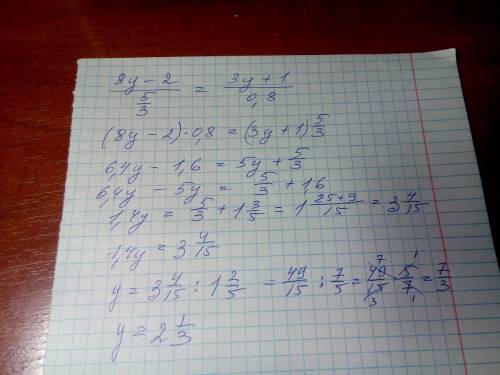 (8y − 2)/(5/3) = (3y + 1)/0,8
(8y − 2) · 0,8 = (3y + 1) 5/3
6,4y − 1,6 = 5y + 5/3
6,4y − 5y = 5/3 + 1,6
1,4y = 5/3 + 1 3/5 = 1 (25+9)/15 = 3 4/15
1,4y = 3 4/15
y = 3 4/15 : 1 2/5 = 49/15 : 7/5 = 49/15 · 5/7 = 7/3
y = 2 1/3